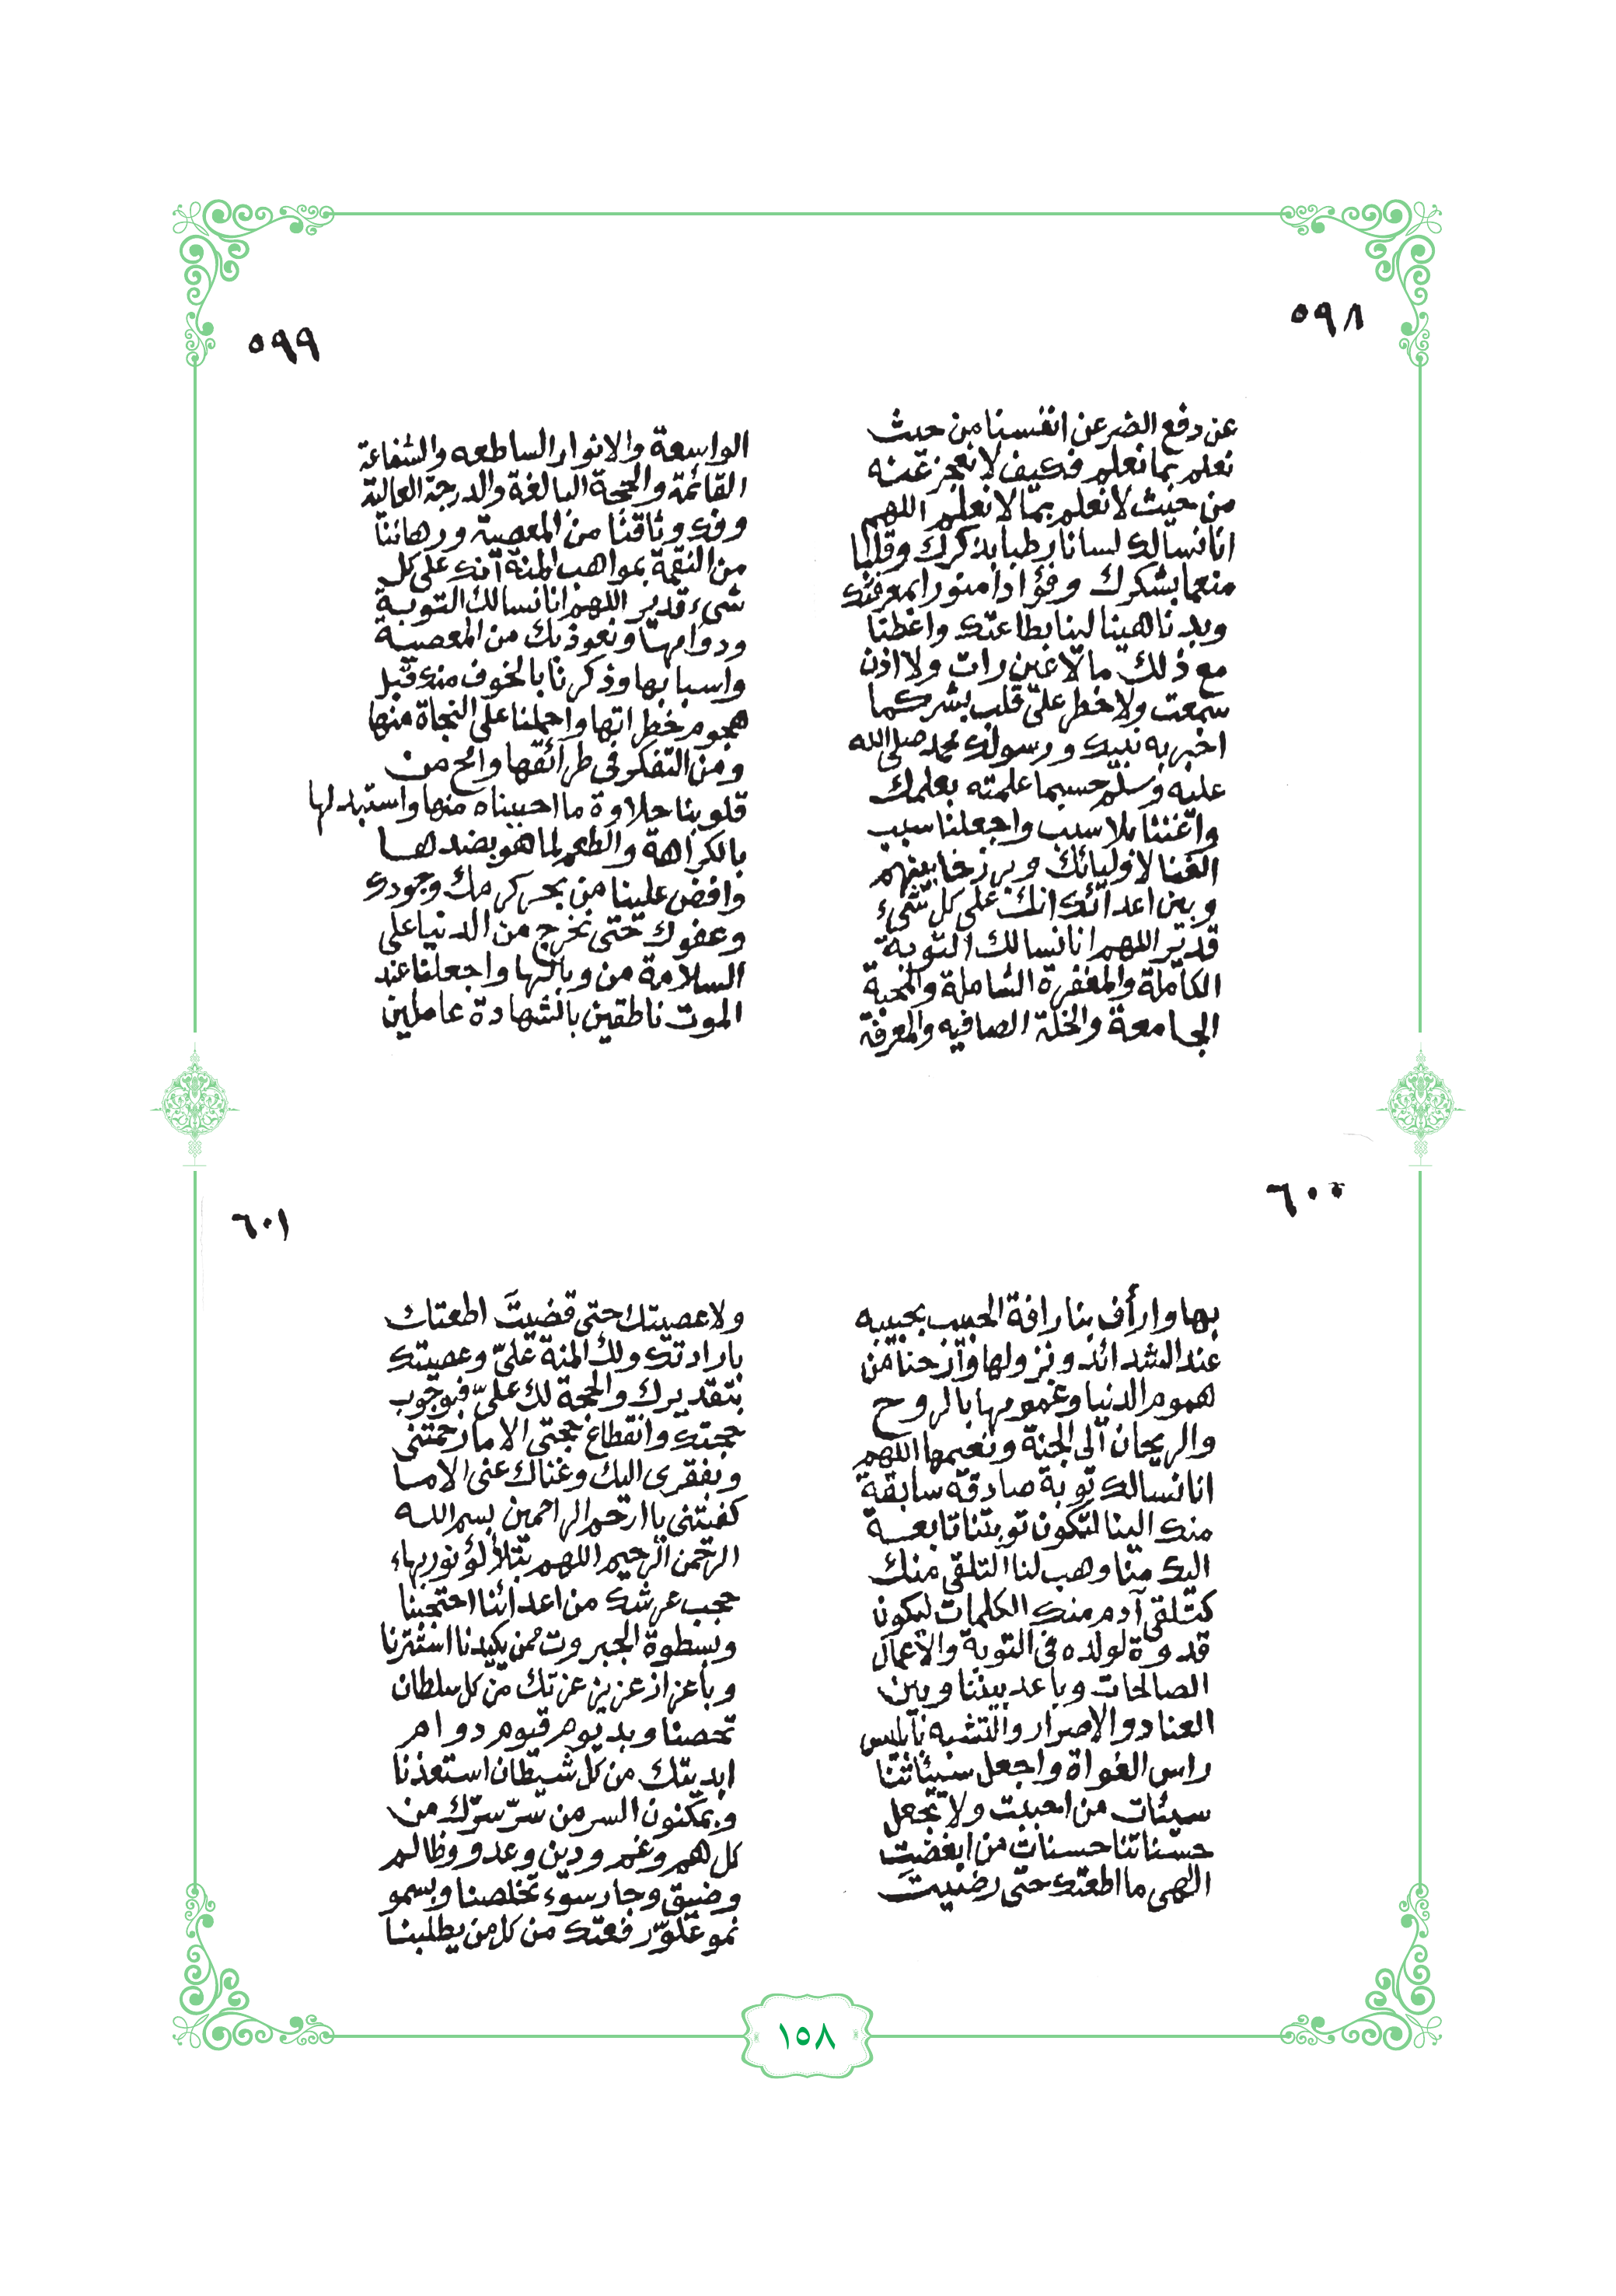 ٥٩٨
عن دفع الضر عن انفسنا من حيث
نعلم بما نعلم فكيف لا نعجز عنه
من حيث لا نعلم بما لا نعلم اللهم
انا نسالك لسانا رطبا بذكرك وقلبا
منعما بشكرك وفؤادا منورا بمعرفتك
وبدنا هينا لينا بطاعتك واعطنا
مع ذلك ما لا عين رات ولا اذن
سمعت ولا خطر على قلب بشر كما
اخبر به نبيك ورسولك محمد صلى الله
عليه وسلم حسبما علمته بعلمك
واغننا بلا سبب واجعلنا سبب
الغنا لاوليائك وبرزخا بينهم
وبين اعدائك انك على كل شىء
قدير اللهم انا نسالك التوبة
الكاملة والمغفرة الشاملة والمحبة
الجامعة والخلة الصافيه والمعرفة
٥٩٩
الواسعة والانوار الساطعه والشفاعة
القائمة والحجة البالغة والدرجة العالية
وفك وثاقنا من المعصية ورهاننا
من النقمة بمواهب المنة انك على كل
شىء قدير اللهم انا نسالك التوبة
ودوامها ونعوذ بك من المعصية
واسبابها وذكرنا بالخوف منك قبل
هجوم خطراتها واحملنا على النجاة منها
ومن التفكر فى طرائقها وامح من
قلوبنا حلاوة ما احببناه منها واستبدلها
بالكراهة والطعم لما هو بضدها
وافض علينا من بحر كرمك وجودك
وعفوك حتى نخرج من الدنيا على
السلامة من وبالها واجعلنا عند
الموت ناطقين بالشهادة عاملين
٦٠٠
بها وارأف بنا رافة الحبيب بحبيبه
عند الشدائد ونزولها وازحنا من
هموم الدنيا وغمومها بالروح
والريحان الى الجنة ونعيمها اللهم
انا نسالك توبة صادقة سابقة
منك الينا لتكون توبتنا تابعة
اليك منا وهب لنا التلقى منك
كتلقى آدم منك الكلمات ليكون
قدوة لولده فى التوبة والاعمال
الصالحات وباعد بيننا وبين
العناد والاصرار والتشبه بابليس
راس الغواة واجعل سيئاتنا
سيئات من احببت ولا تجعل
حسناتنا حسنات من ابغضت
الهى ما اطعتك حتى رضيت
٦٠١
ولا عصيتك حتى قضيتَ اطعتك
بارادتك ولك المنة علىّ وعصيتك
بتقديرك والحجة لك علىّ فبوجوب
حجتك وانقطاع حجتى الا ما رحمتنى
وبفقرى اليك وغناك عنى الا ما
كفيتنى يا ارحم الراحمين بسم الله
الرحمن الرحيم اللهم بتلألؤ نور بهاء
حجب عرشك من اعدائنا احتجبنا
وبسطوة الجبروت ممن يكيدنا استترنا
وباعزاز عزيز عزتك من كل سلطان
تحصنا وبديوم قيوم دوام
ابديتك من كل شيطان استعذنا
وبمكنون السر من سرّ سرّك من
كل هم وغم ودين وعدو وظالم
وضيق وجار سوء تخلصنا وبسمو
نمو علوّ رفعتك من كل من يطلبنا
١٥٨